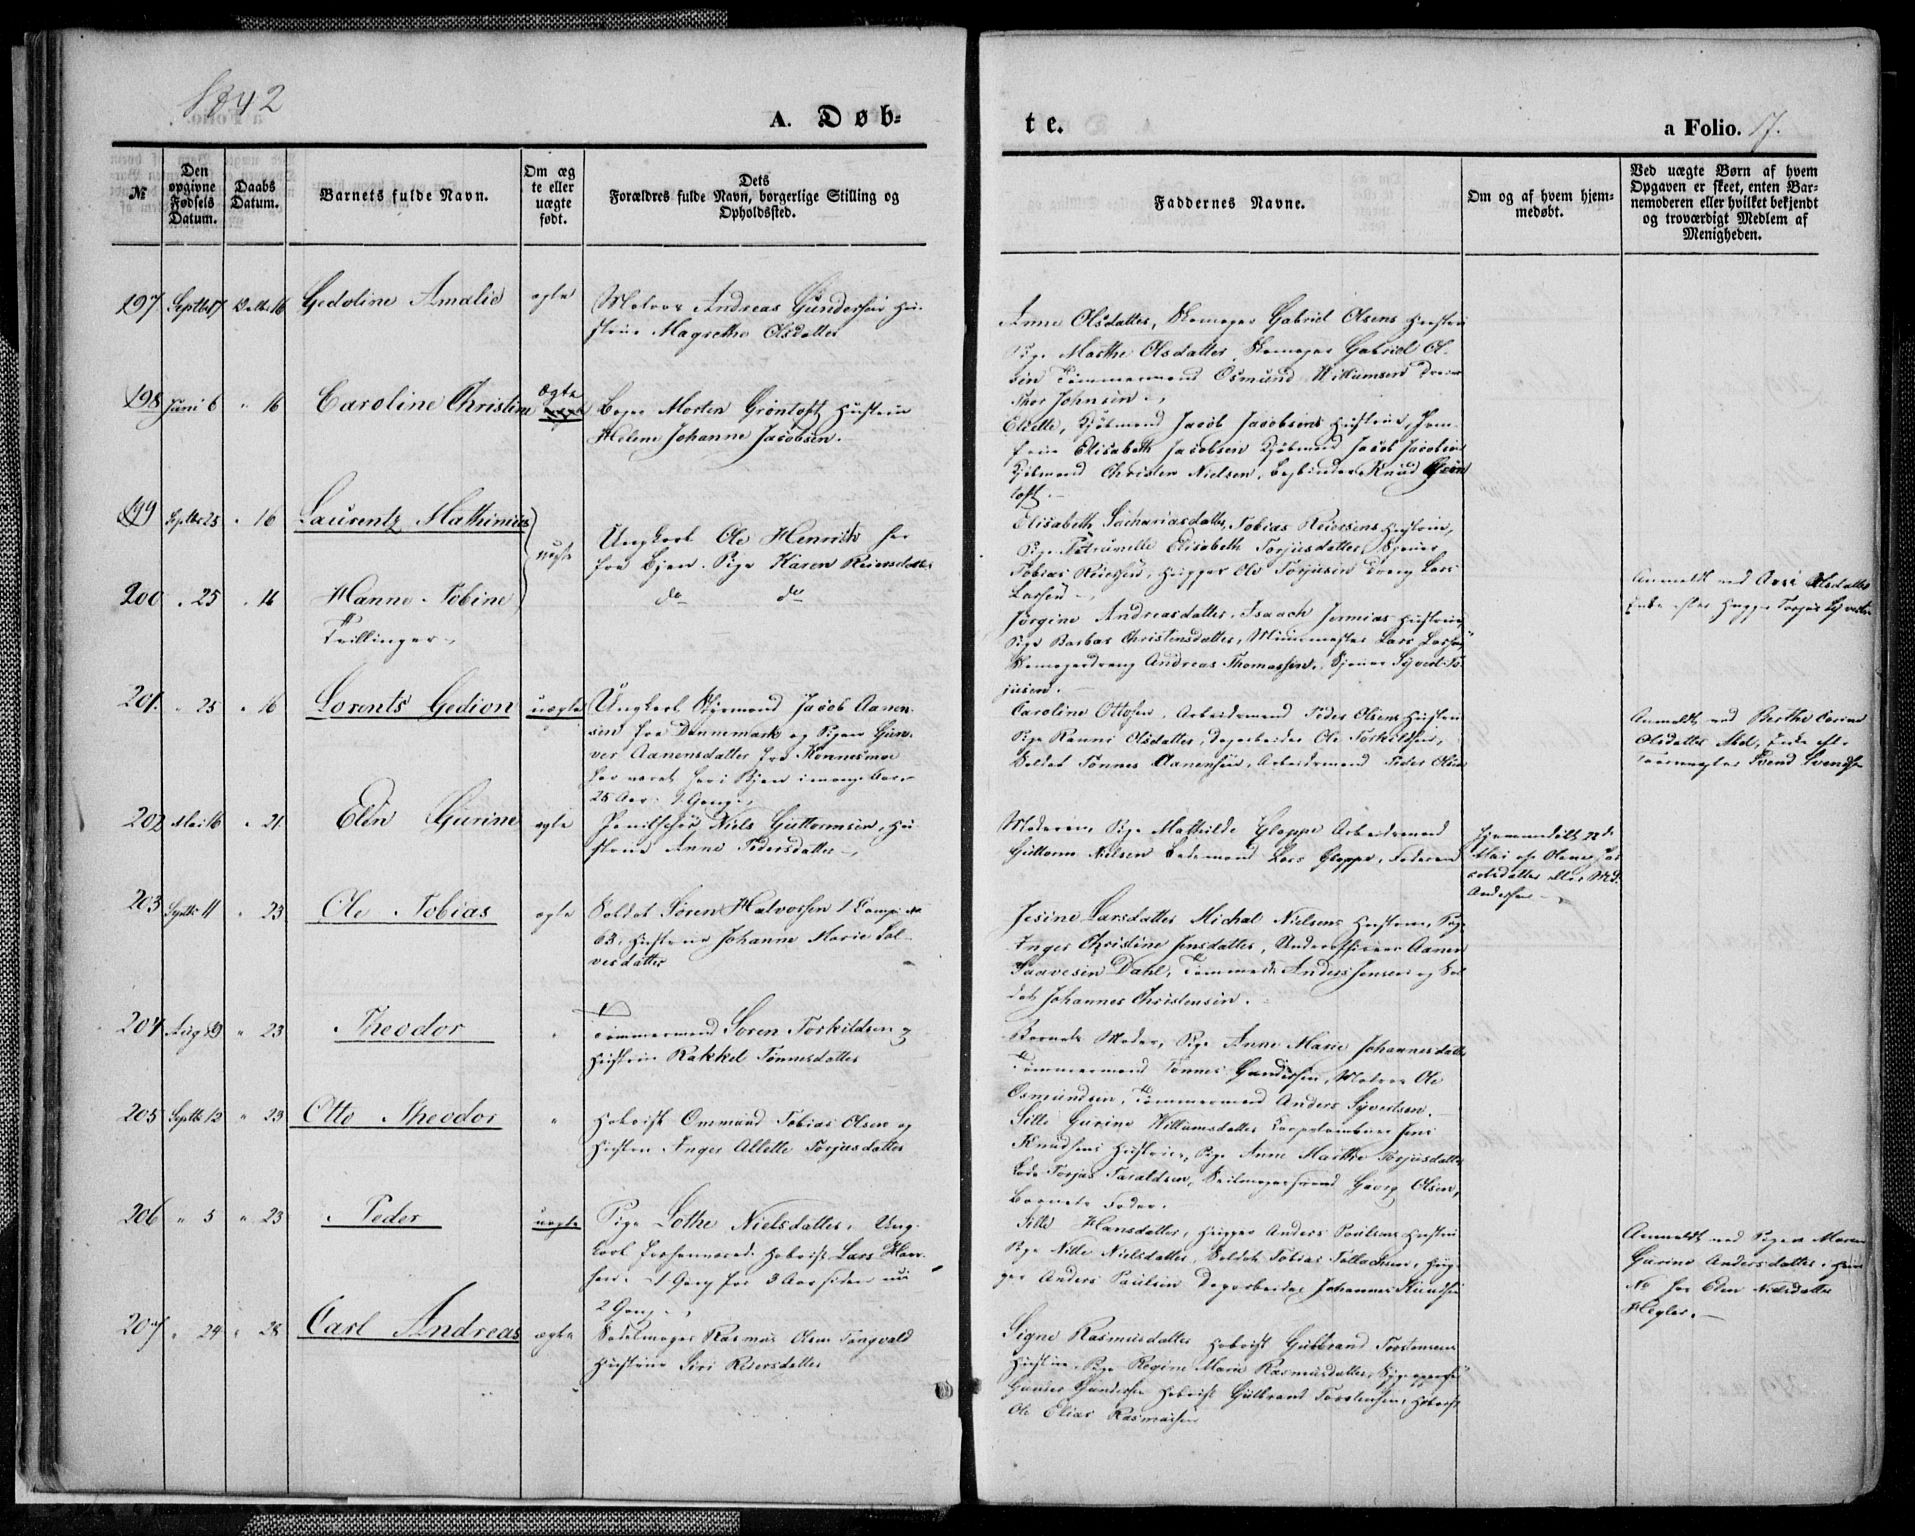 1842
A. Døb-
te.
a Folio. 17.
№
Den opgivne Fødsels Datum.
Daabs Datum.
Barnets fulde Navn.
Om ægte eller uægte født.
Dets
Forældres fulde Navn, borgerlige Stilling og
Opholdssted.
Faddernes Navne.
Om og af hvem hjem-
medøbt.
Ved uægte Børn af hvem
Opgaven er skeet, enten Bar-
nemoderen eller hvilket bekjendt
og troværdigt Medlem af
Menigheden.
197 Septbr 17 Octbr 16 Gedoline Amalie ægte Matros Andreas Gundersen Hu-
strue Magrethe Olsdatter
Anne Olsdatter, Skomager Gabriel Olsens Hustru
Pige Marthe Olsdatter, Skomager Gabriel Ol-
sen Tømmermand Osmund Willumsen
Thor Johnsen
198 Juni 6 " 16 Caroline Christine ægte Morten Grøntoft Hustrue
Helene Johanne Jacobsen.
Kjøbmand Jacob Jacobsens Hustrue, Jom-
frue Elisabeth Jacobsen Kjøbmand Jacob Jacobsen
Kjøbmand Christen Nielsen, Bogbinder Knud Grøn
toft.
199 Septbr 25 " 16 Laurentz Mathinius
uægte Ungkarl Ole Henrik her
fra Byen. Pige Karen Reiersdatter
Elisabeth Sachariasdatter, Tobias Reiersens Hustrue,
Pige Petrunelle Elisabeth Torjusdatter,
Tobias Reiersen, Hugger Ole Torjusen Dreng Lars
Larsen
200 " 25 " 16 Hanne Tobine do do
Tvillinger
Jørgine Andreasdatter, Isaach Jermias Hustrue,
Pige Barbar Christensdatter, Muurmester Lars Larsen,
Skomagerdreng Andreas Thomassen, Syvert Tor-
jusen.
Anmeldt ved Olsdatter
Enke efter Hugger Torjus
201. " 25 " 16 Lorents Gedion uægte Ungkarl Styrmand Jacob Aanen-
sen fra Dannemark og Pigen Gun-
vor Aanensdatter fra Konnesmoe
har været her i Byen i mange Aar
25 Aar 1 Gang
Caroline Ottosen, Arbeidsmand Peder Olsens Hustrue
Pige Olsdatter, Dagarbeider Ole Torkildsen,
Soldat Tønnes Aanensen, Arbeidsmand Peder Olsen
Anmeldt ved Berthe
Olsdatter
202 Mai 16 " 21 Elen Gurine ægte Niels Guttormsen, Hu-
strue Anne Pedersdatter
Moderen, Pige Mathilde Gloppe Arbeidsmand
Guttorm Nielsen Lars Gloppe, Faderen
Hjemmedøbt 22de
Mai af
Andersen
203 Septbr 11 " 23 Ole Tobias ægte Soldat Søren Halvorsen 1 Comp. No
63, Hustrue Johanne Marie Sal-
vesdatter
Jesine Larsdatter Michal Nielsens Hustrue, Pige
Inger Christine Jensdatter, Underofficeer Aanen
Saavesen Dahl, Anders Jensen og Sol-
dat Johannes Christensen.
204 Aug 29 " 23 Theodor " Tømmermand Søren Torkildsen og
Hustrue Rakkel Tønnesdatter
Barnets Moder, Pige Anne Marie Johannesdatter
Tømmermand Tønnes Gundersen, Matros Ole
Osmundsen, Tømmermand Anders Syvertsen.
205 Septbr 12 " 23 Otto Theodor " Ommund Tobias Olsen og
Hustrue Inger Allette Torjusdatter
Sille Gurine Willumsdatter Jens
Knudsens Hustrue, Pige Anne Marthe Torjusdatter
Lods Torjus Taraldsen, Georg Olsen,
Barnets Fader.
206 " 5 " 23 Peder uægte Pige Lothe Nielsdatter. Ung-
karl Lars Han-
sen. 1 Gang for 3 Aar siden nu
2 Gang
Hansdatter, Hugger Anders Poulsens Hustrue
Pige Nille Nielsdatter, Soldat Tobias Tellachsen, Hug-
ger Anders Paulsen Dagarbeider Johannes Knudsen
Anmeldt ved Pigen Maren
Gurine Andersdatter,
No for Elen Nielsdatter
207 " 24 " 28 Carl Andreas ægte Sadelmager Rasmus Olsen Tangvald
Hustrue Siri Reiersdatter
Signe Rasmusdatter Gulbrand Torstensens
Hustrue, Pige Regine Marie Rasmusdatter,
Gunder Gundersen Gulbrand Torstensen,
Ole Elias Rasmussen